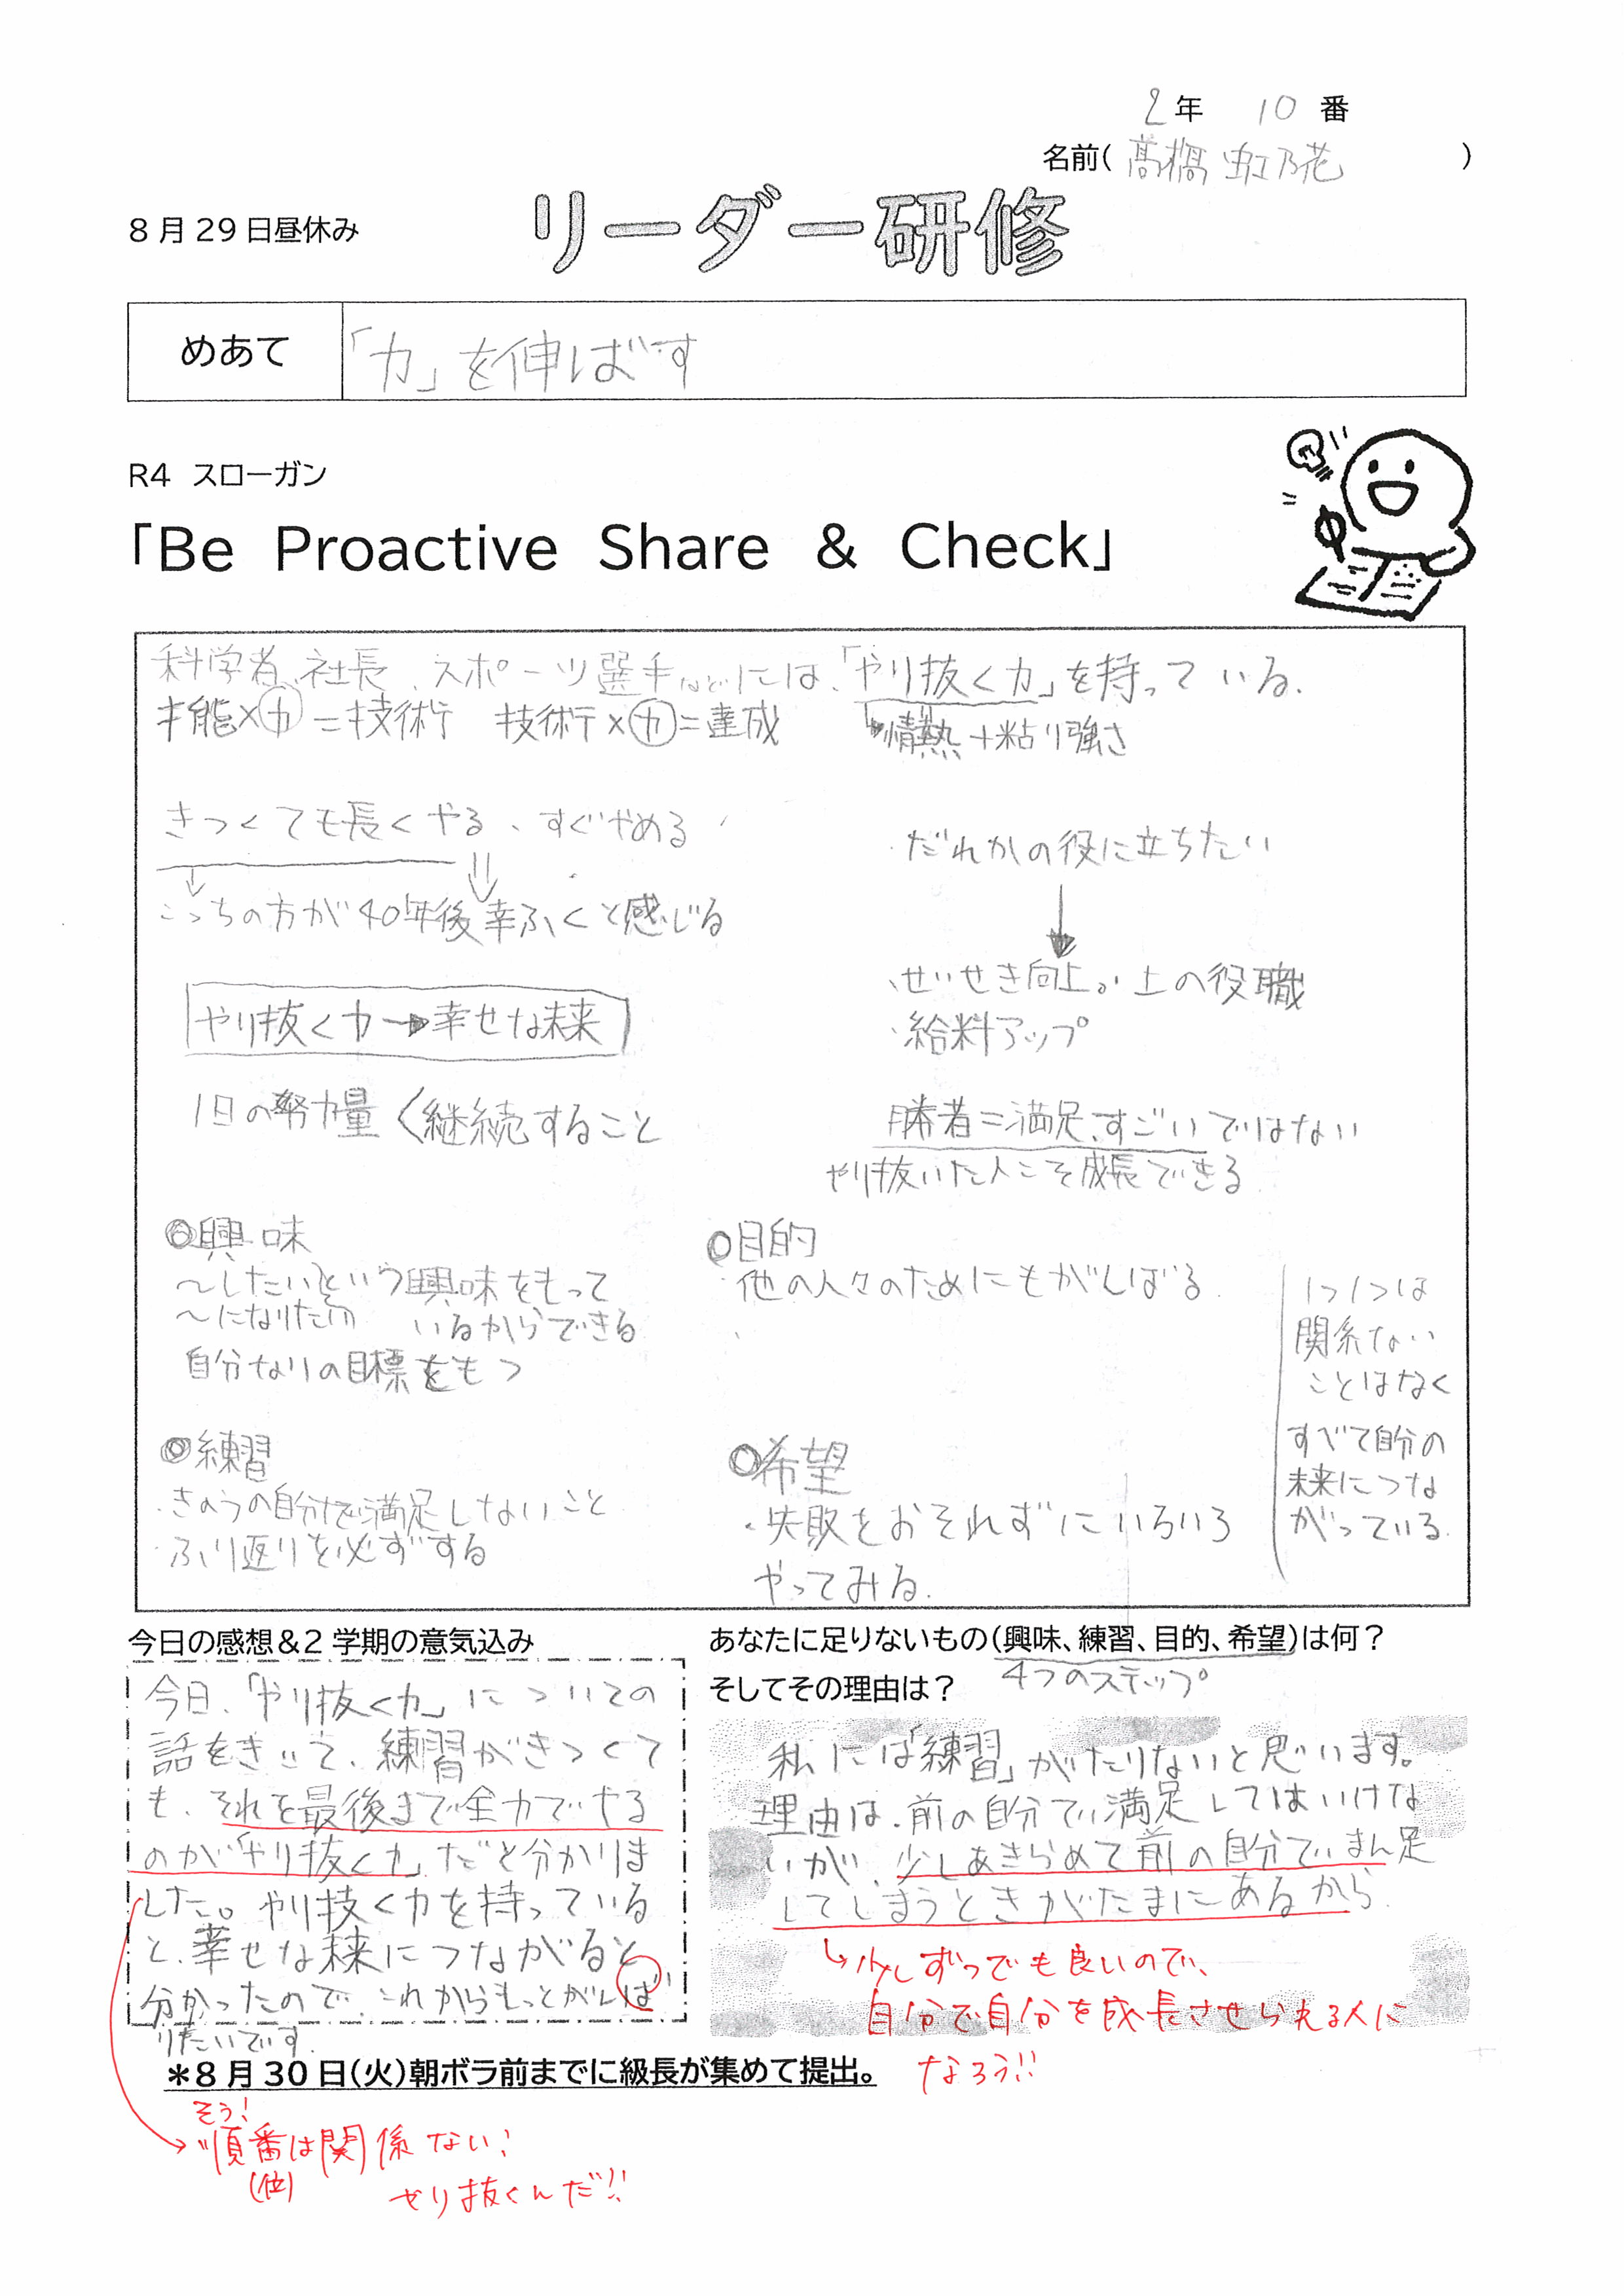 2年 10番
名前(髙橋 虹乃花)
8月29日昼休み
リーダー研修
めあて
「力」を伸ばす
R4 スローガン
「Be Proactive Share & Check」
科学者、社長、スポーツ選手などには、「やり抜く力」を持っている。
才能×力=技術 技術×力=達成 情熱+粘り強さ
きつくても長くやる、すぐやめる
こっちの方が40年後幸ふくと感じる
やり抜く力→幸せな未来
1日の努力量<継続すること
・だれかの役に立ちたい
・せいせき向上。・上の役職
・給料アップ
勝者=満足、すごいではない
やり抜いた人こそ成長できる
◎興味
~したいという興味をもって
~になりたい いるからできる
自分なりの目標をもつ
◎目的
・他の人々のためにもがんばる
1つ1つは
関係ない
ことはなく
すべて自分の
未来につな
がっている。
◎練習
・きのうの自分で満足しないこと
・ふり返りを必ずする
◎希望
・失敗をおそれずにいろいろ
やってみる。
今日の感想&2学期の意気込み
今日、「やり抜く力」についての
話をきいて、練習がきつくて
も、それを最後まで全力でやる
のが「やり抜く力」だと分かりま
した。やり技く力を持っている
と、幸せな未来につながると
分かったので、これからもっとがんば
りたいです。
あなたに足りないもの(興味、練習、目的、希望)は何?
そしてその理由は?
4つのステップ
私には「練習」がたりないと思います。
理由は、前の自分で満足してはいけな
いが、少しあきらめて前の自分でまん足
してしまうときがたまにあるから。
少しずつでも良いので、
自分で自分を成長させられる人に
なろう!!
*8月30日(火)朝ボラ前までに級長が集めて提出。
そう!
順番は関係ない!
(位)
やり抜くんだ!!